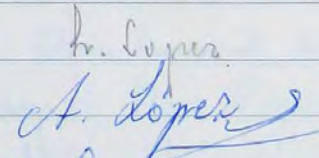 Lopez
A. López